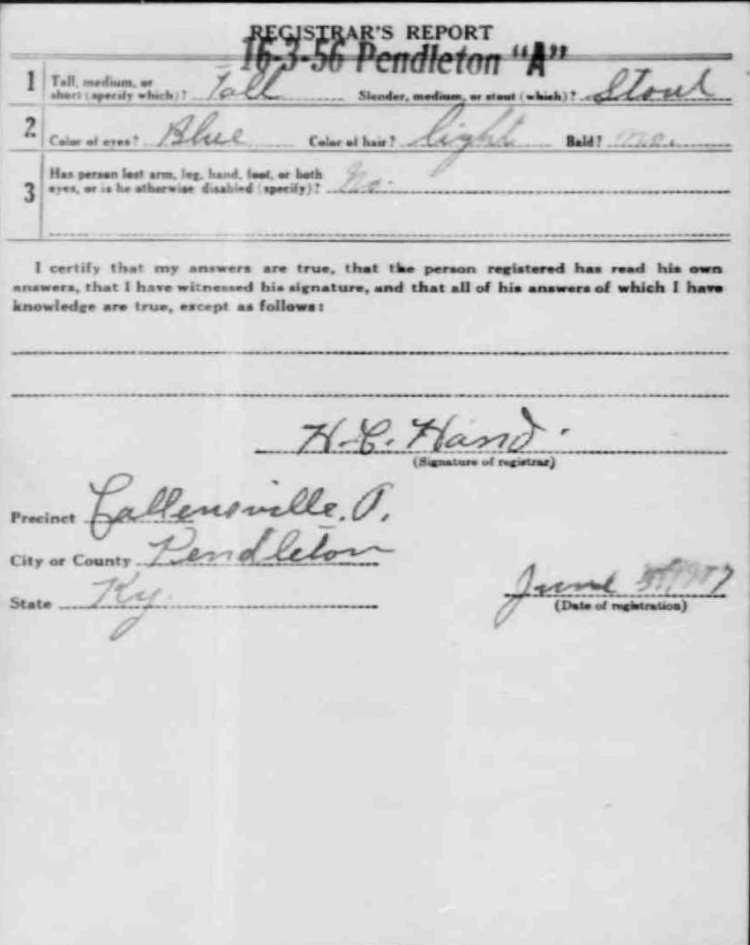 REGISTRAR'S REPORT
16-3-56 Pendleton "A"
1 Tall, medium, or short (specify which)? Tall Slender, medium, or stout (which)? Stout
2 Color of eyes? Blue Color of hair? light Bald? no.
3 Has person lost arm, leg, hand, foot, or both
eyes, or is he otherwise disabled (specify)? No.
I certify that my answers are true, that the person registered has read his own
answers, that I have witnessed his signature, and that all of his answers of which I have
knowledge are true, except as follows:
H. C. Hand.
(Signature of registrar)
Precinct Callensville.
City or County Pendleton
State Ky.
June
(Date of registration)